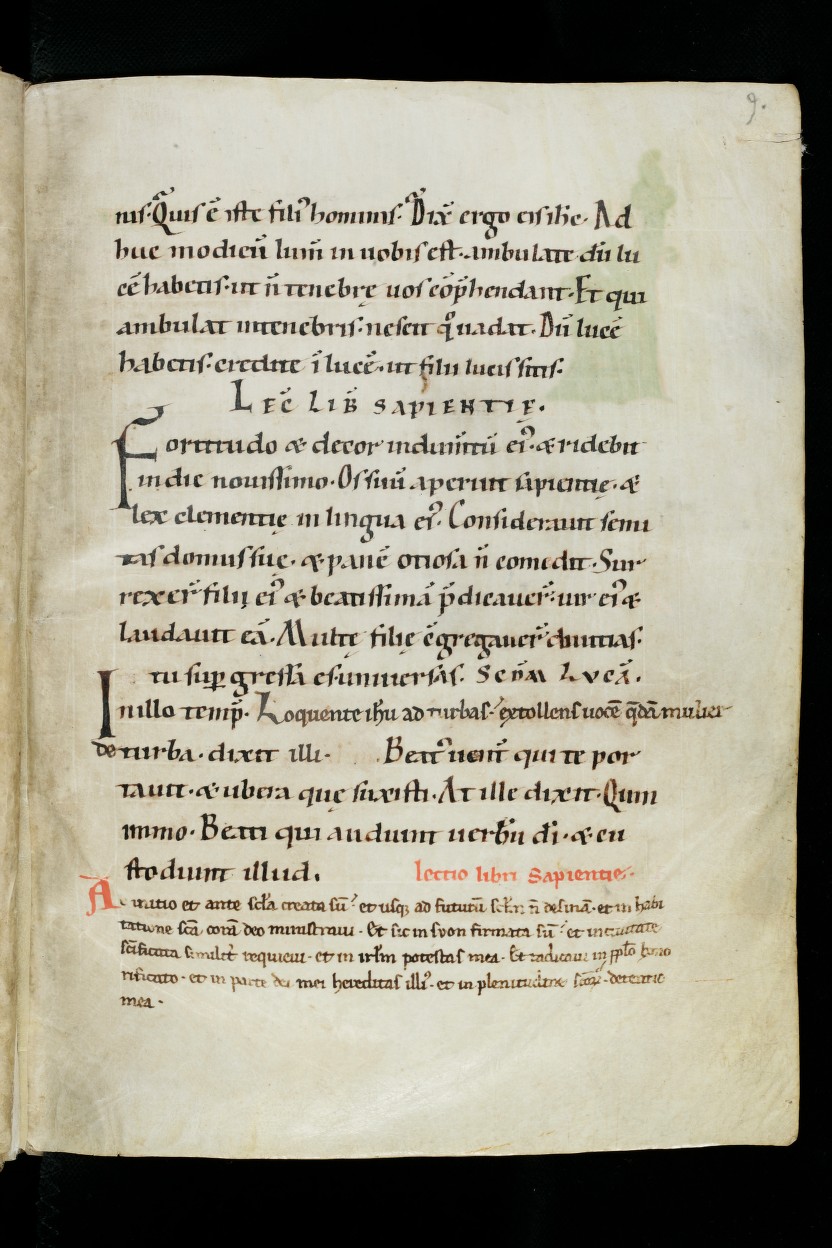 9.
nis. Quis ē iste fili᾽ hominis. Dix̄ ergo eis ih̄c. Ad
huc modicū lum̄ in uobis est. ambulate dū lu
cē habetis. ut n̄ tenebrę uos cōp̄hendant. Et qui
ambulat in tenebris. nescit q̊ uadat. Dū lucē
habetis. credite ī lucē. ut filii lucis sitis.
LEC̄ LIB̄ SAPIENTIĘ.
Fortitudo & decor indum̄tū ei᾽. & ridebit
in die nouissimo. Os suū aperuit sapientię. &
lex clementię in lingua ei᾽. Considerauit semi
tas domus suę. & panē otiosa n̄ comedit. Sur
rexer̄ filii ei᾽ & beatissimā p̄dicauer̄. uir ei᾽ &
laudauit eā. Multę filię c̄gregauer̄ diuitias.
tu sup̱gressa es uniuersas. Scd̄m Lucā.
In illo temp̄. Loquente ih̄u ad turbas. extollens uocē q̄dā mulier
de turba. dixit illi. Beat᾽ uent̄ qui te por
tauit. & ubera que suxisti. At ille dixit. Quin
immo. Beati qui audiunt uerbū dī. & cu
stodiunt illud.
lectio libri Sapientię.
Ab initio et ante sc̄la creata sū. et usq; ad futurū sc̄lm n̄ desinā. et in habi
tatione sc̄a corā deo ministraui. Et sic in syon firmata sū. et in ciuitate
sc̄ificata similit̄ requieui. et in ierl̄m potestas mea. Et radicaui in pp̄lo hono
rificato. et in parte dei mei hereditas illi᾽. et in plenitudine sc̄oꝝ. detentio
mea.